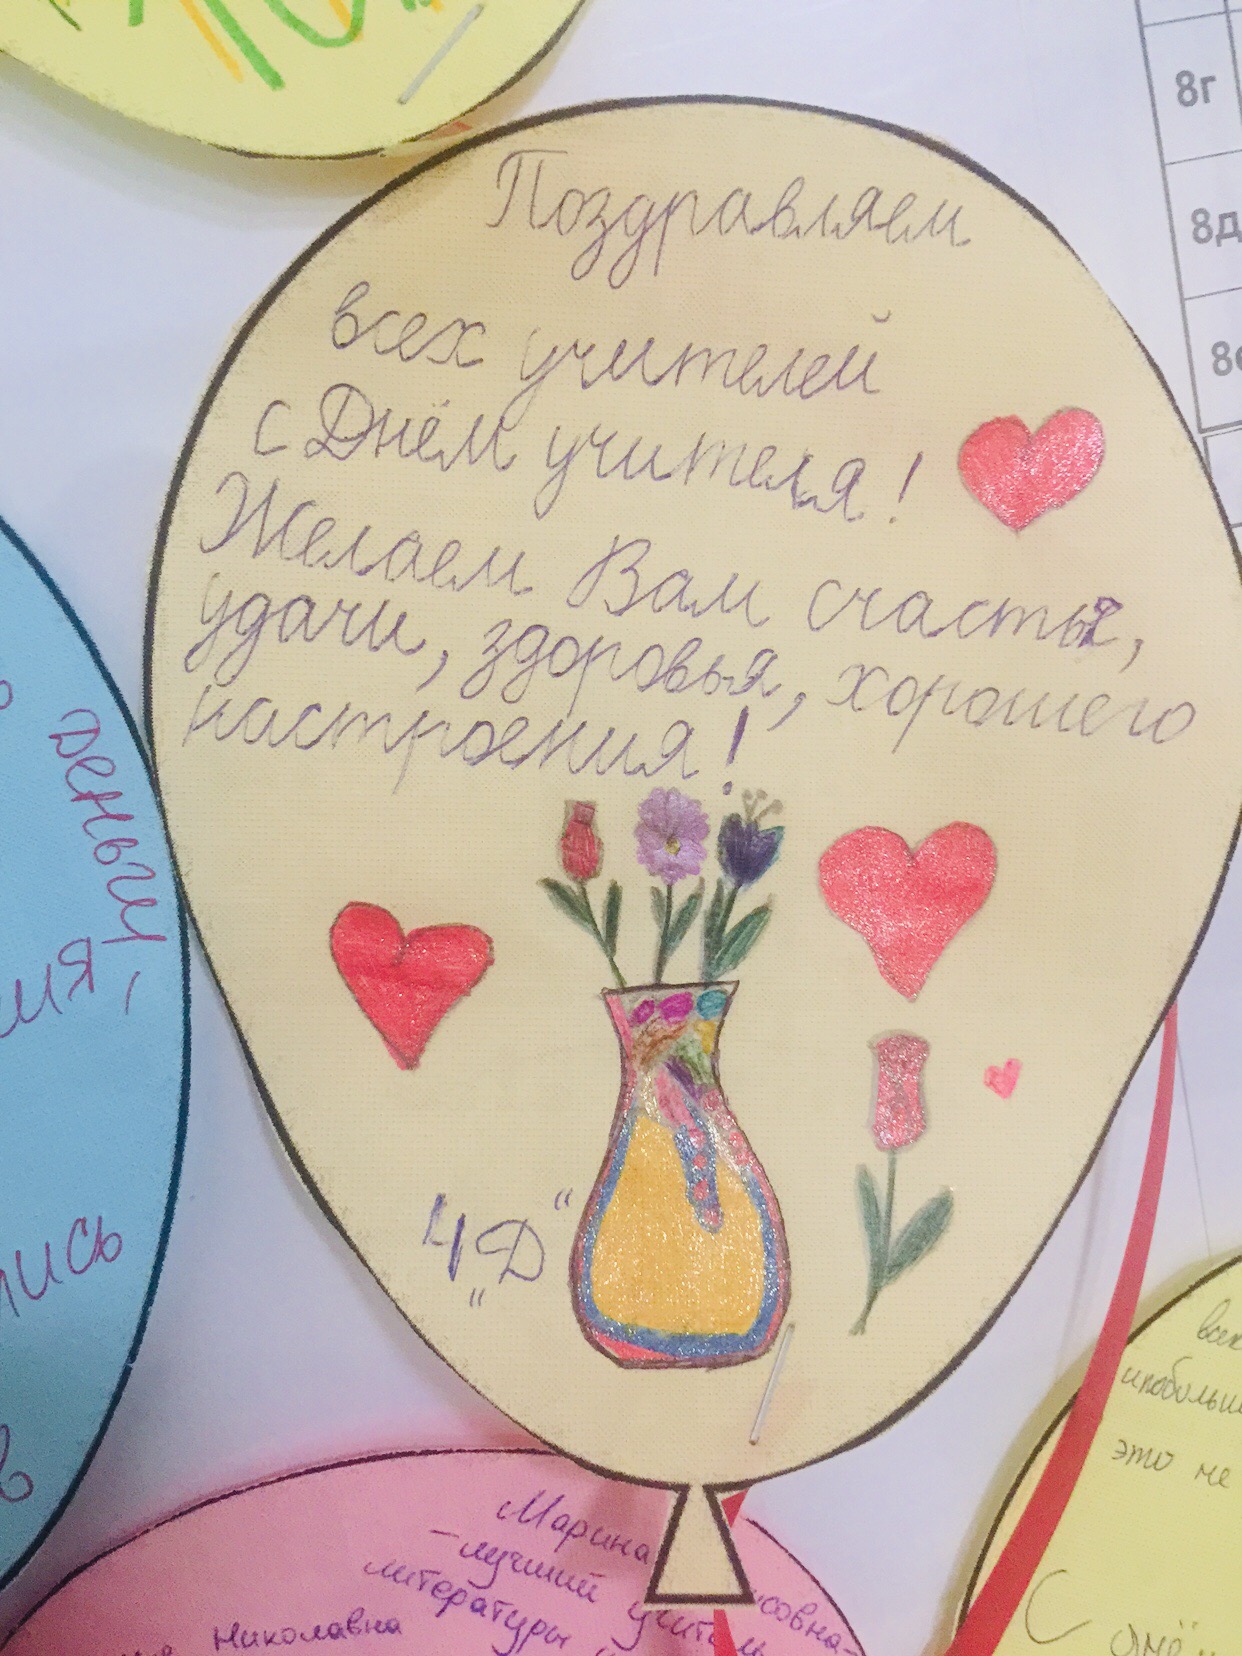 8г
8д
Поздравляем
всех учителей
с Днём учителя!
Желаем Вам счастья,
удачи, здоровья, хорошего
настроения!
4 „Д“
деньги,
Марина
- лучший учитель
литературы
Николавна
всех
это не
С